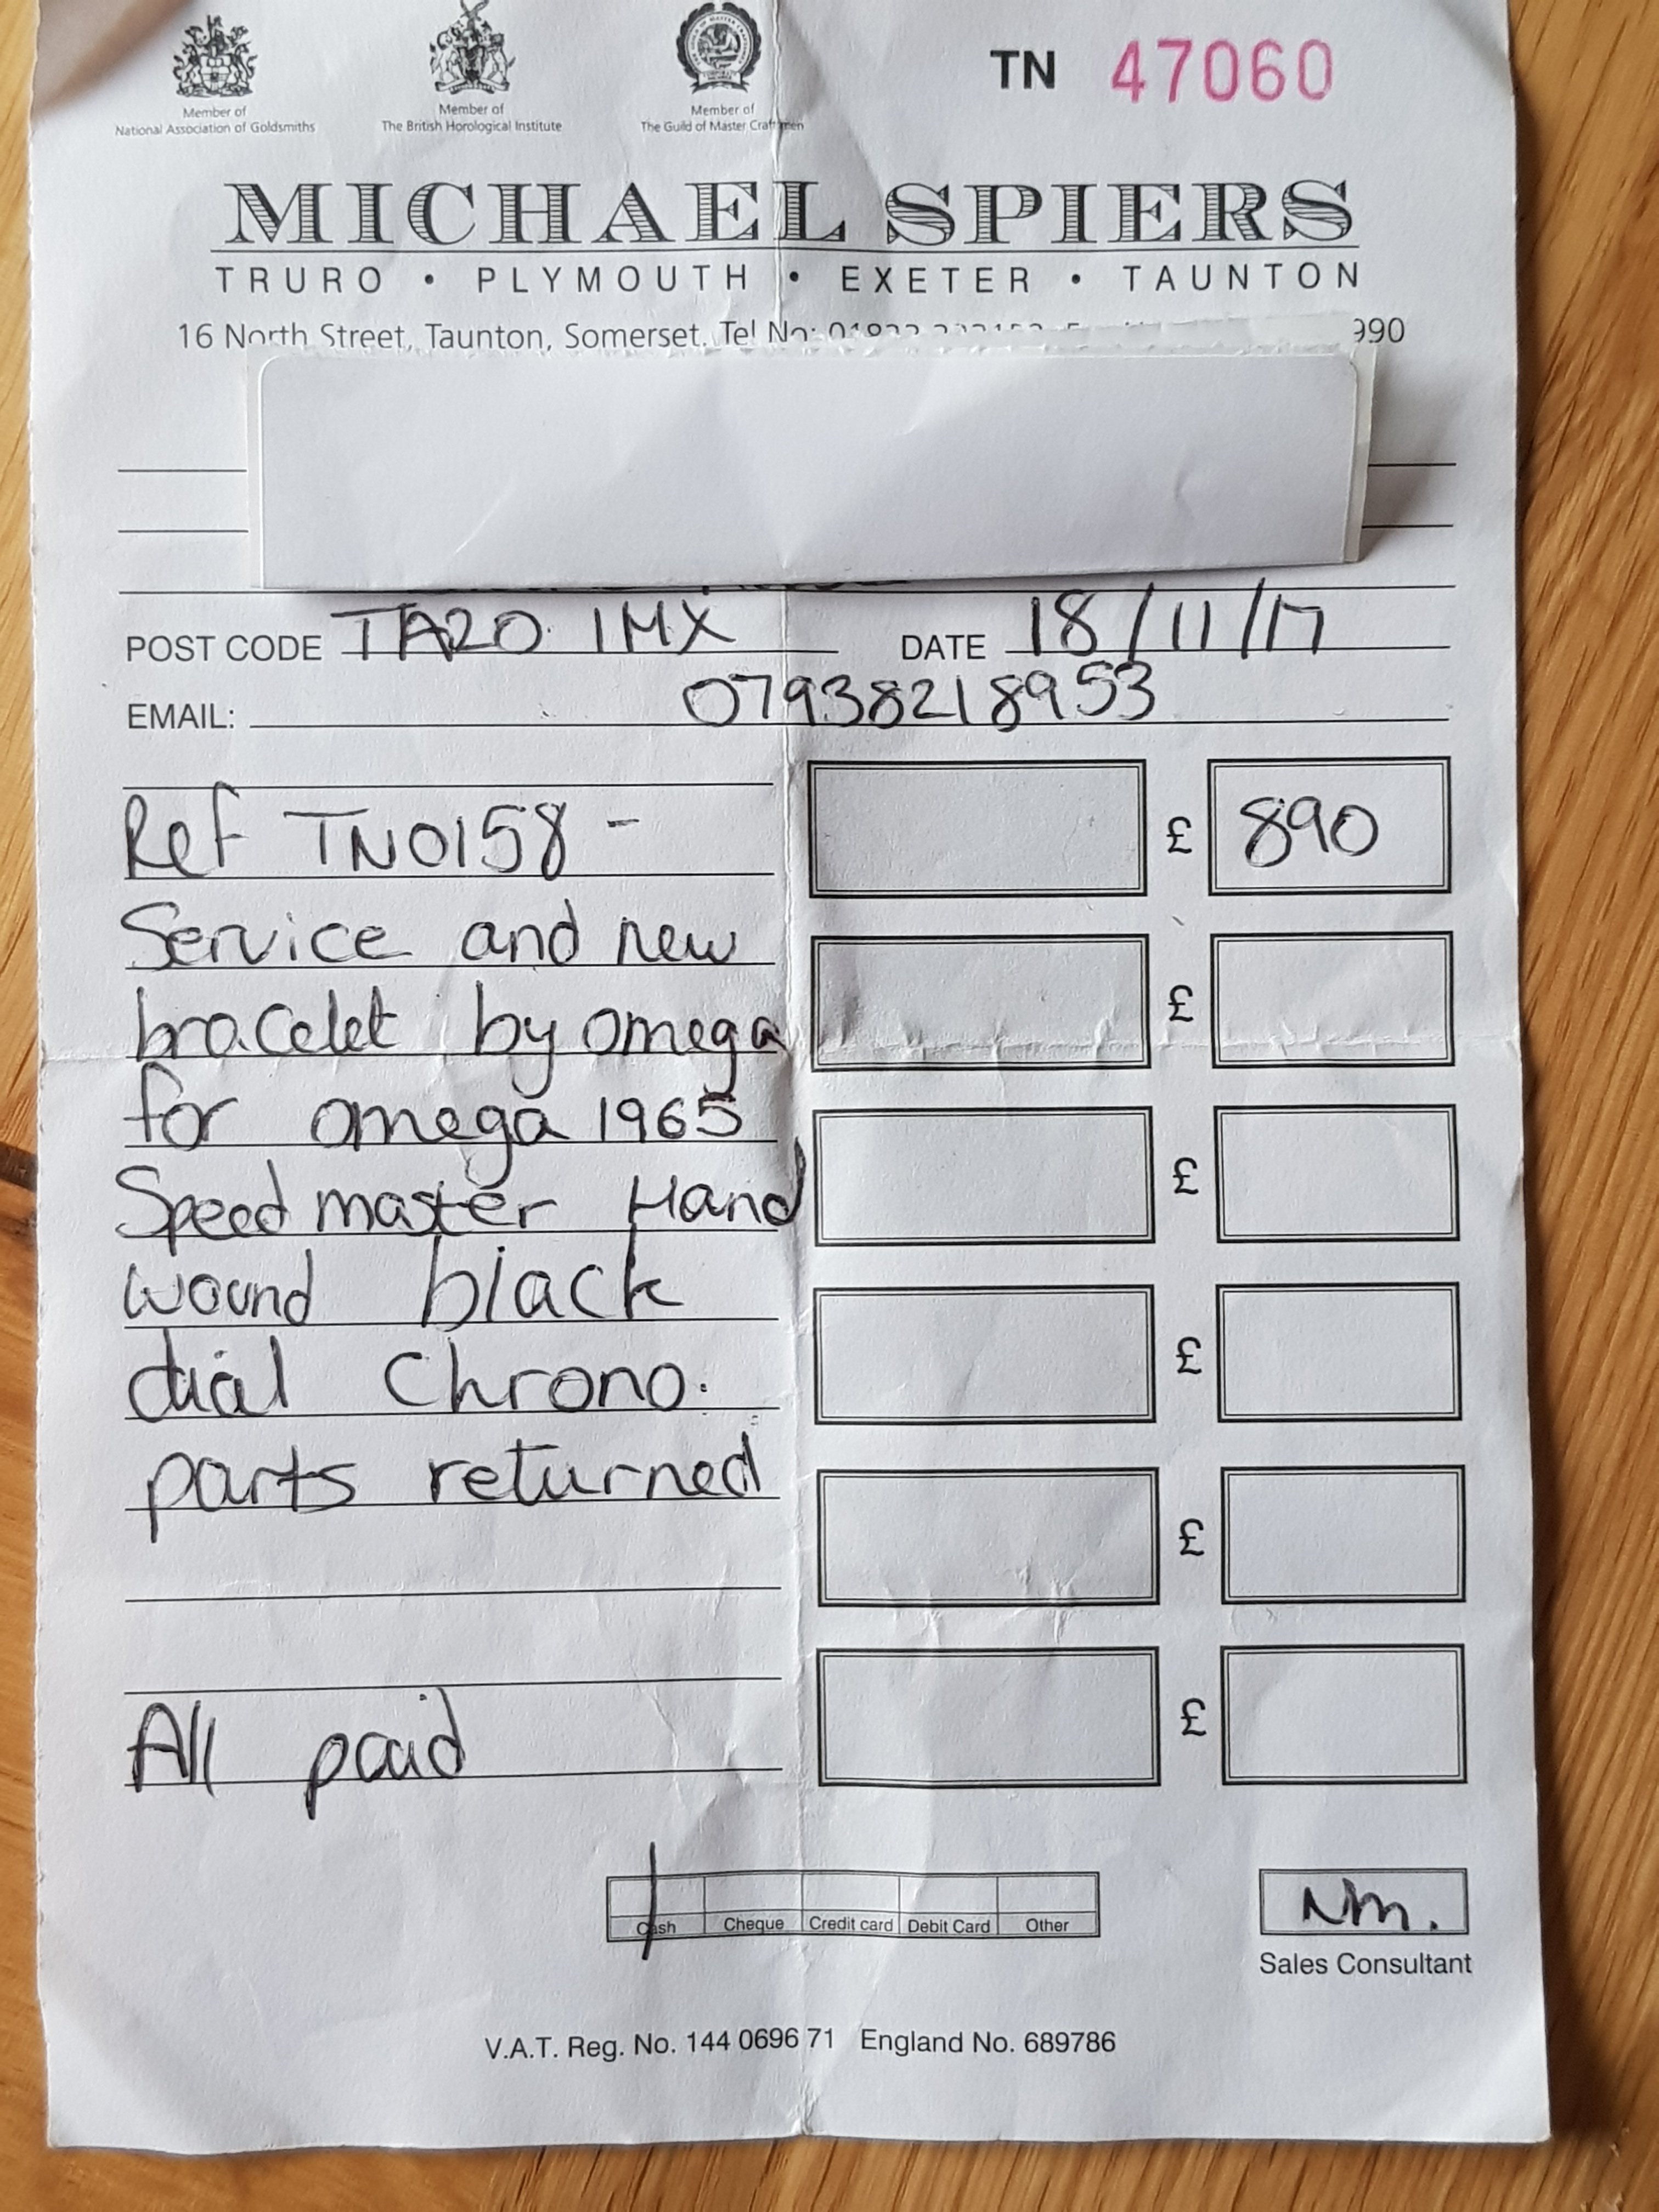 TN 47060
Member of
National Association of Goldsmiths
Member of
The British Horological Institute
Member of
The Guild of Master Craftsmen
MICHAEL SPIERS
TRURO • PLYMOUTH • EXETER • TAUNTON
16 North Street, Taunton, Somerset. Tel No: 990
POST CODE TA20 1MX DATE 18/11/17
EMAIL: 07938218953
Ref TN0158 - £ 890
Service and new
bracelet by omega £
for omega 1965
Speedmaster Hand £
wound black
dial Chrono. £
parts returned
£
All paid £
Cash Cheque Credit card Debit Card Other
Nm.
Sales Consultant
V.A.T. Reg. No. 144 0696 71 England No. 689786